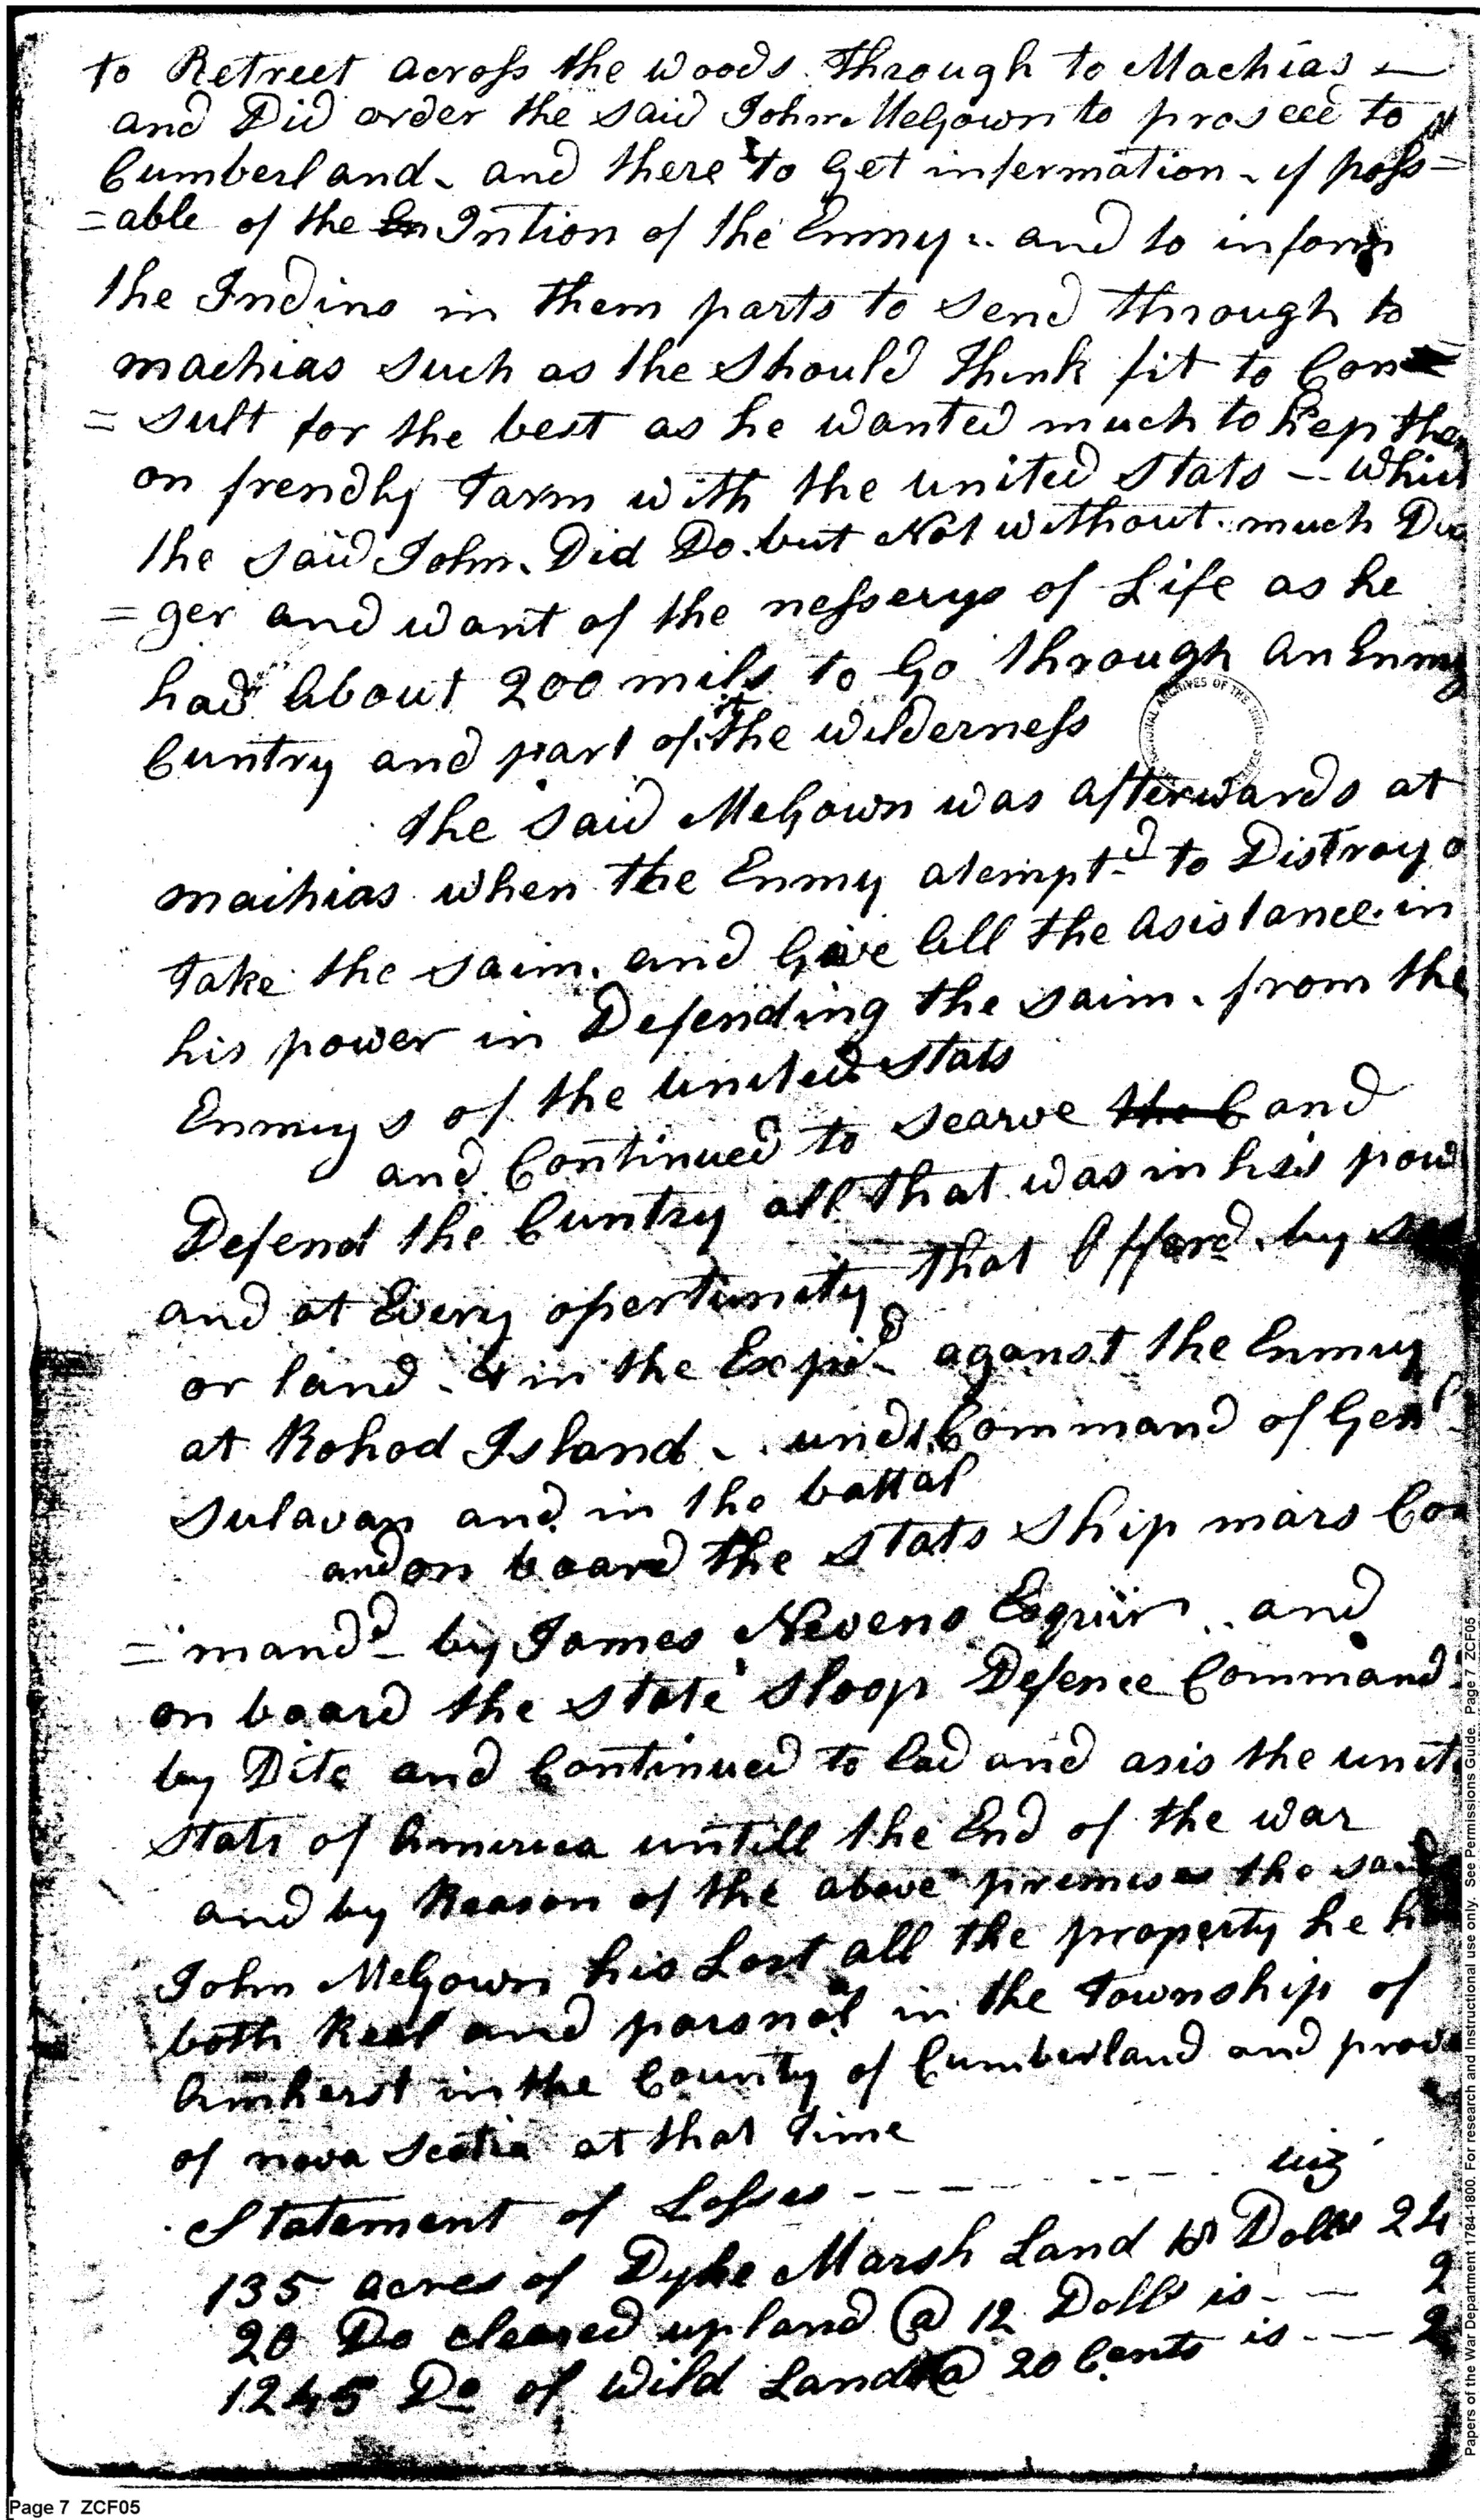 to Retreet across the woods through to Machias —
and Did order the said John McGown to proseed to
Cumberland and there to Get infermation if poss=
=able of the Intion of the Enmy and to inform
the Indins in them parts to send through to
machias such as the should think fit to Con=
=sult for the best as he wanted much to Kep the
on frendly tarm with the united Stats — whic
the said John Did Do but Not without much Da
=ger and want of the nesserys of Life as he
had About 200 mils to Go through an Enmy
Cuntry and part of it the wilderness
the said McGown was afterwards at
maihias when the Enmy atemptd to Distroy o
take the saim and Give All the Asistance in
his power in Defending the saim from the
Enmuy s of the united Stats
and Continued to searve the C and
Defend the Cuntry all that was in his pow
and at Every opertunity that Afford by
or land & in the Expd aganst the Enmuy
at Rohod Island und Command of Genl
Sulavan and in the battal
and on board the Stats Ship mars Com
=mandd by James Nevens Esquir and
on board the state Sloop Defence Command
by Dito and Continued to Cad and asis the unit
Stats of America untill the End of the war
and by Reason of the above premises the said
John McGown his Lost all the property he h
both Reel and parsnal in the township of
Amherst in the County of Cumberland and prov
of nova Scotia at that time
Statement of Losses - - - - - - - viz
135 acres of Dyke Marsh Land 18 Dolls 24
20 Do cleared upland @ 12 Dolls is - — 2
1245 Do of Wild Land @ 20 Cents is - - — 2
Papers of the War Department 1784-1800. For research and instructional use only. See Permissions Guide. Page 7 ZCF05
Page 7 ZCF05